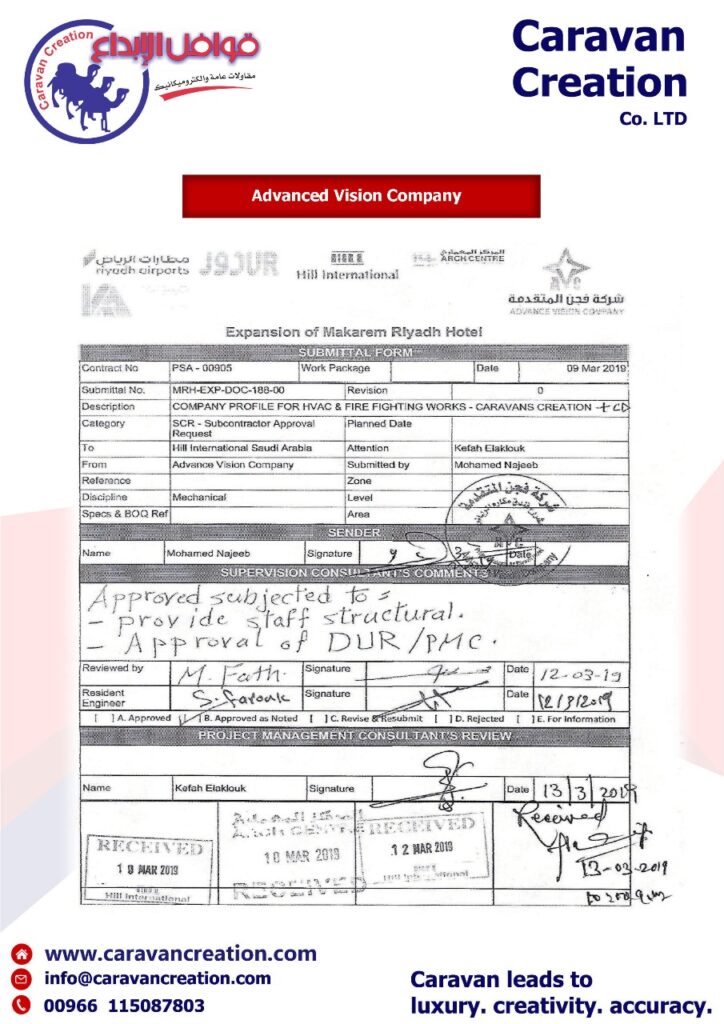 Caravan Creation
قوافل الإبداع
مقاولات عامة والكتروميكانيك
Caravan
Creation
Co. LTD
Advanced Vision Company
مطارات الرياض
riyadh airports
Hill International
المركز المعماري
ARCH CENTRE
شركة فجن المتقدمة
ADVANCE VISION COMPANY
Expansion of Makarem Riyadh Hotel
SUBMITTAL FORM
Contract No PSA - 00905 Work Package Date 09 Mar 2019
Submittal No. MRH-EXP-DOC-188-00 Revision 0
Description COMPANY PROFILE FOR HVAC & FIRE FIGHTING WORKS - CARAVANS CREATION + CD
Category SCR - Subcontractor Approval Request Planned Date
To Hill International Saudi Arabia Attention Kefah Elaklouk
From Advance Vision Company Submitted by Mohamed Najeeb
Reference Zone
Discipline Mechanical Level
Specs & BOQ Ref Area
شركة فجن المتقدمة
SENDER
Name Mohamed Najeeb Signature Date
SUPERVISION CONSULTANT'S COMMENTS
Approved subjected to =
- provide staff structural.
- Approval of DUR/PMC.
Reviewed by M. Fath. Signature Date 12-03-19
Resident Engineer S. Farouk Signature Date 12/3/2019
[ ] A. Approved [ ] B. Approved as Noted [ ] C. Revise & Resubmit [ ] D. Rejected [ ] E. For Information
PROJECT MANAGEMENT CONSULTANT'S REVIEW
Name Kefah Elaklouk Signature Date 13/3/2019
Received
13-03-2019
RECEIVED
10 MAR 2019
Hill International
10 MAR 2019
RECEIVED
RECEIVED
12 MAR 2019
Hill International
www.caravancreation.com
info@caravancreation.com
00966 115087803
Caravan leads to
luxury. creativity. accuracy.